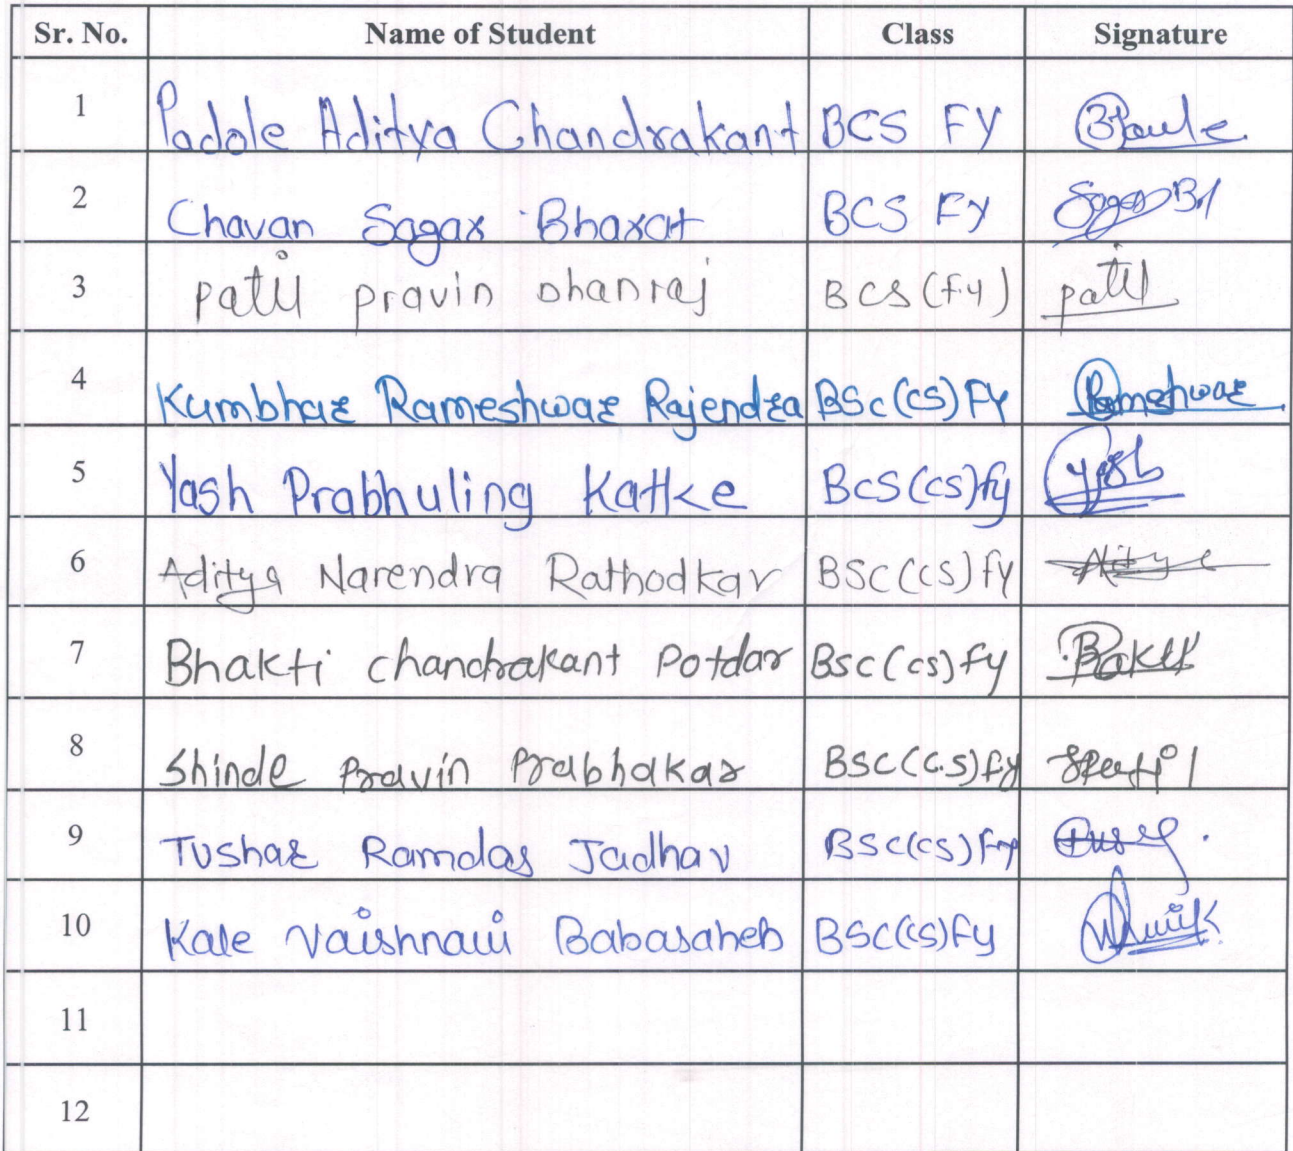 Sr. No. Name of Student Class Signature
1 Padole Aditya Chandrakant BCS FY
2 Chavan Sagar Bharat BCS FY
3 patil pravin Dhanraj BCS (fy) patil
4 Kumbhar Rameshwar Rajendra BSc(cs) Fy Rameshwar
5 Yash Prabhuling Katke BCS(cs) fy Yash
6 Aditya Narendra Rathodkar BSc(cs) fy Aditya
7 Bhakti chandrakant Potdar Bsc(cs) fy
8 Shinde Pravin Prabhakar BSC(C.S) fy
9 Tushar Ramdas Jadhav BSC(CS) Fy
10 Kale Vaishnavi Babasaheb BSC(CS) Fy
11
12